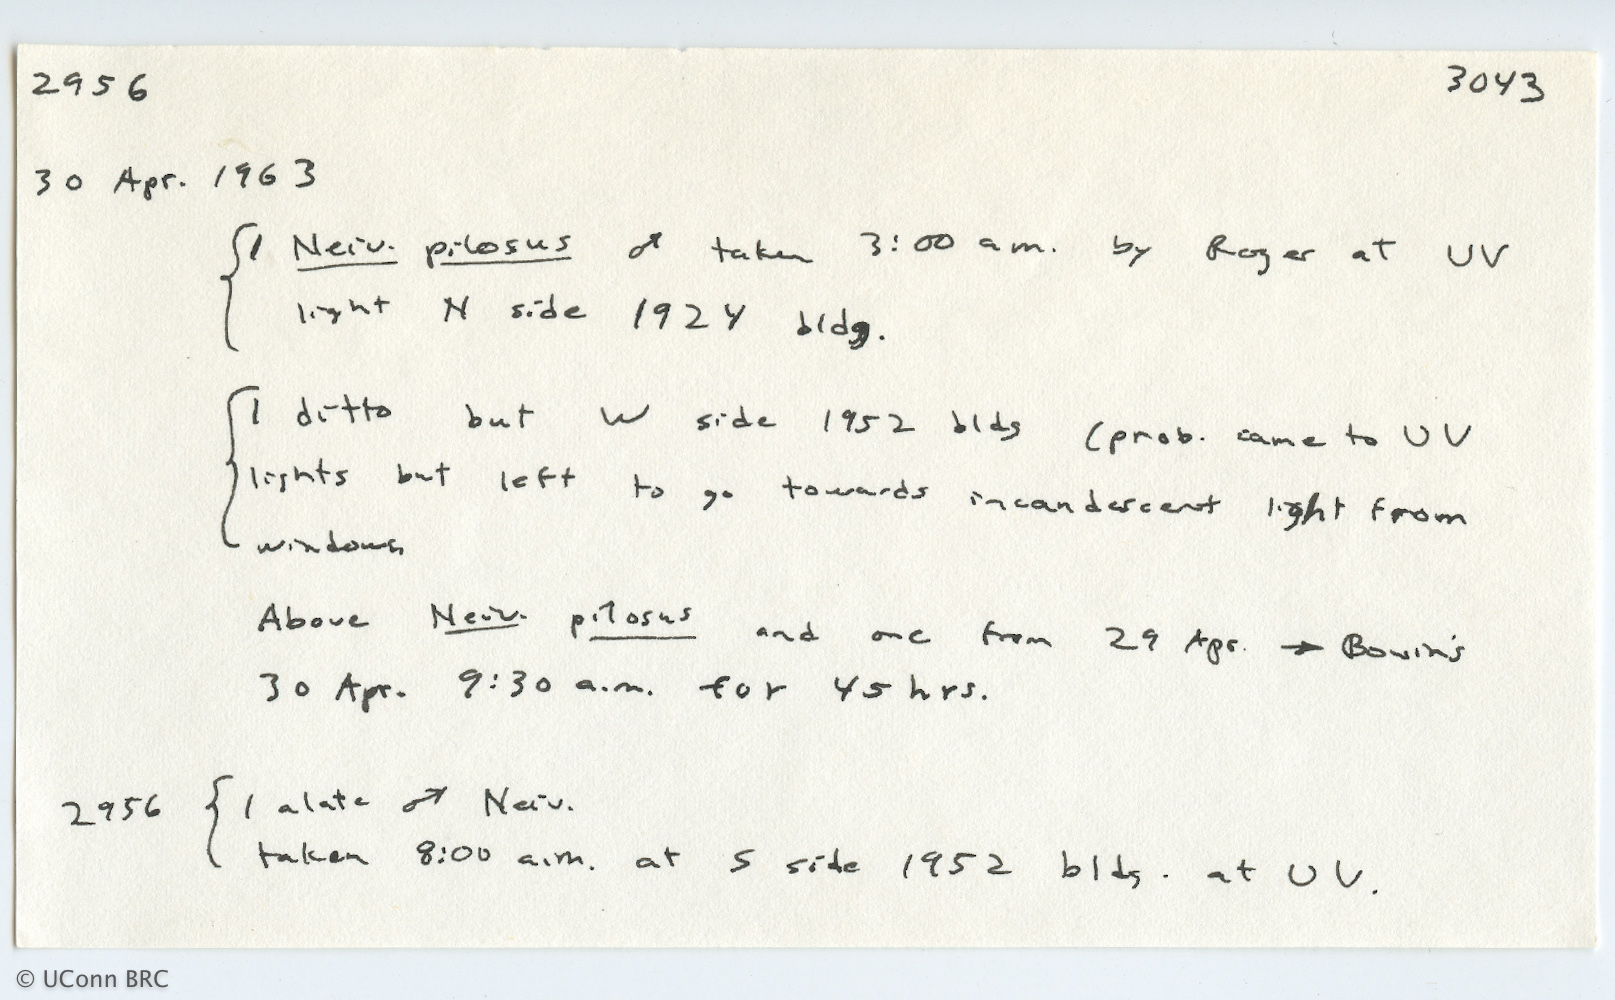 2956 3043
30 Apr. 1963
1 Neiv. pilosus ♂ taken 3:00 a.m. by Roger at UV
light N side 1924 bldg.
1 ditto but W side 1952 bldg (prob. came to UV
lights but left to go towards incandescent light from
windows
Above Neiv. pilosus and one from 29 Apr. → Bouin's
30 Apr. 9:30 a.m. for 45 hrs.
2956 1 alate ♂ Neiv.
taken 8:00 a.m. at S side 1952 bldg. at UV.
© UConn BRC